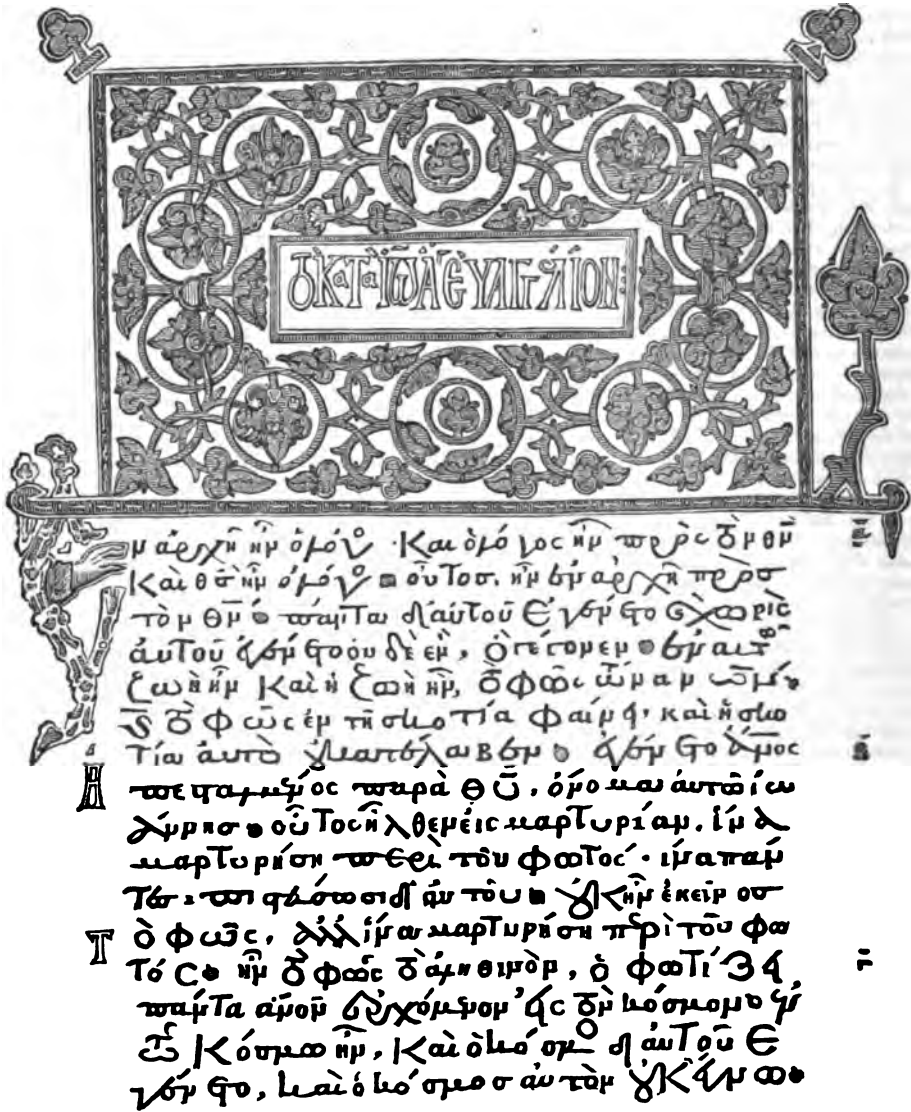 Τὸ Κατὰ Ἰω̅ά̅ Εὐαγγ̅λιον
Ἐν ἀρχῆ ἦν ὁ λόγος · Καὶ ὁ λόγος ἦν πρὸς τὸν θ̅ν̅
Καὶ θ̅ς̅ ἦν ὁ λόγος · οὗτος ἦν ἐν ἀρχῆ πρὸς
τὸν θ̅ν̅ · πάντα δι αὐτοῦ ἐγένετο χωρὶς
αὐτοῦ ἐγένετο οὐδὲ ἕν, ὃ γέγονεν · ἐν αυτῶ
ζωὴ ἦν Καὶ ἡ ζωὴ ἦν, τὸ φῶς τῶν ἀν̅ω̅ν ·
Καὶ τὸ φῶς ἐν τῆ σκοτία φαίνει, καὶ ἡ σκο
τία αὐτὸ οὐ κατέλαβεν · ἐγένετο ἄν̅ο̅ς
ἀπεσταλμένος παρὰ θ̅υ̅, ὄνομα αὐτῶ ἰω
άννης · οὗτος ἦλθεν εἰς μαρτυρίαν, ἵνα
μαρτυρήση περὶ τοῦ φωτός · ἵνα παν
τες πιστεύσωσι δι αὐτοῦ · οὐκ ἦν ἐκεῖνος
τὸ φῶς, ἀλλ ἵνα μαρτυρήση περὶ τοῦ φω
τός · ἦν τὸ φῶς τὸ ἀληθινὸν, ὃ φωτίζει
πάντα ἄν̅ο̅ν ἐρχόμενον εἰς τὸν κόσμον · ἐν
τῶ Κόσμω ἦν, Καὶ ὁ κόσμος δι αὐτοῦ Ἐ
γένετο, καὶ ὁ κόσμος αὐτὸν οὐκ ἔγνω ·